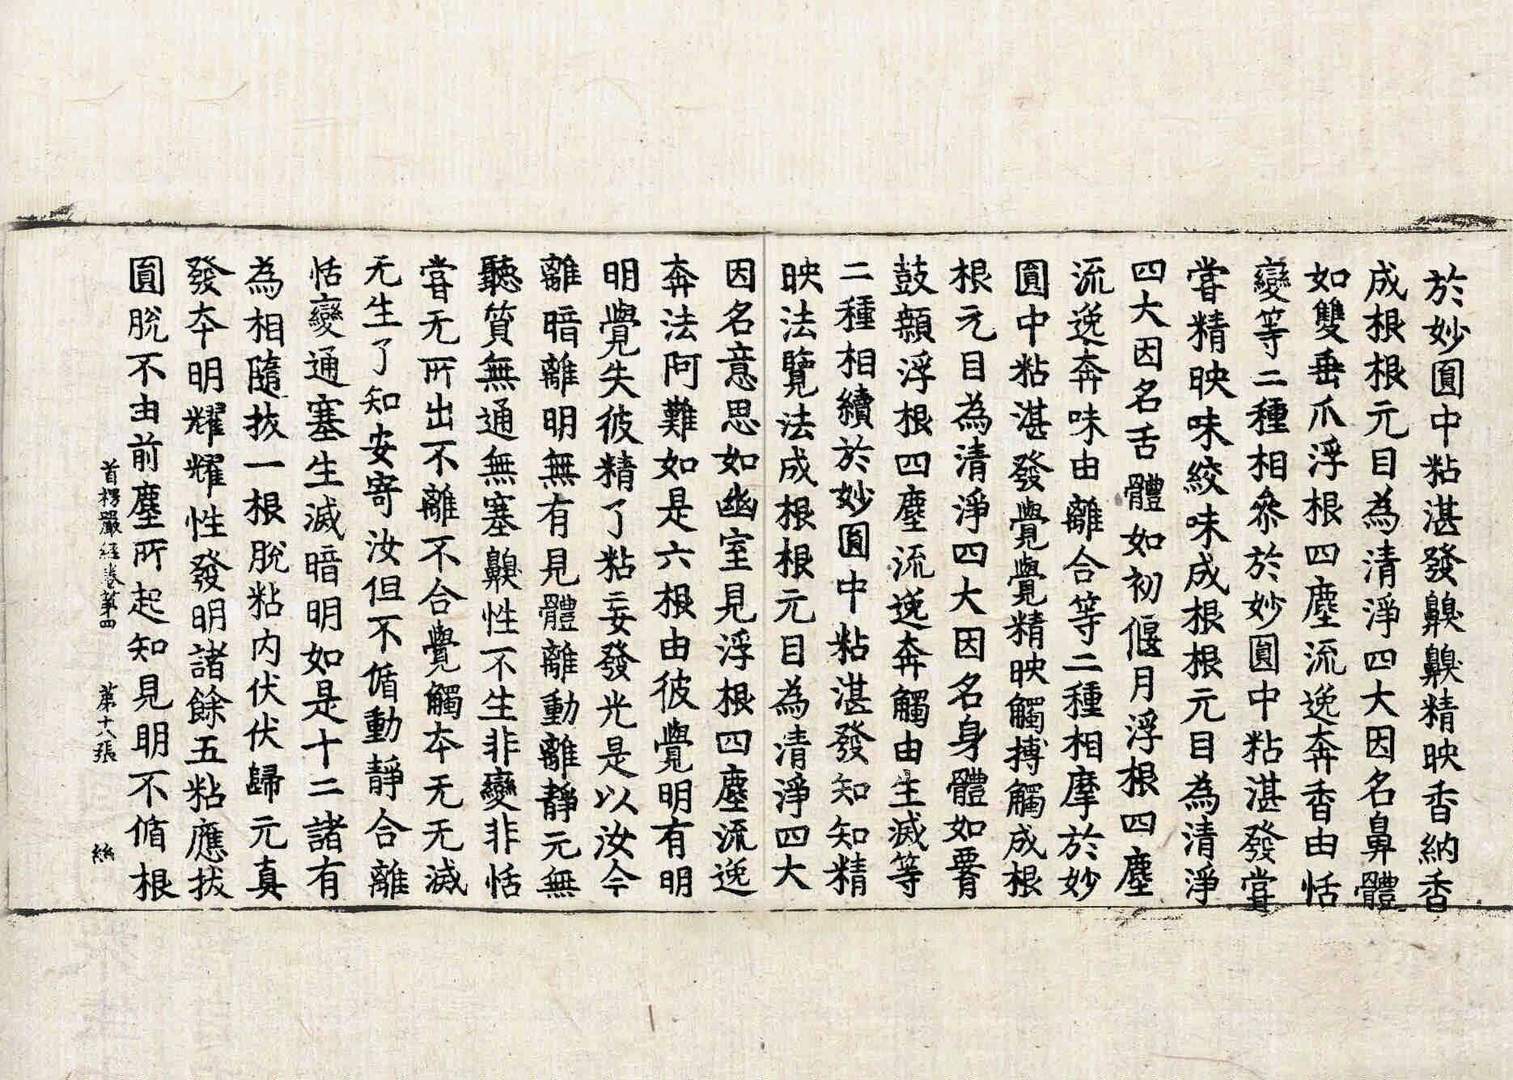 於妙圓中粘湛發齅齅精映香納香
成根根元目為清淨四大因名鼻體
如雙垂爪浮根四塵流逸奔香由恬
變等二種相叅於妙圓中粘湛發甞
甞精映味絞味成根根元目為清淨
四大因名舌體如初偃月浮根四塵
流逸奔味由離合等二種相摩於妙
圓中粘湛發覺覺精映觸搏觸成根
根元目為清淨四大因名身體如𦝫
鼓顙浮根四塵流逸奔觸由生滅等
二種相續於妙圓中粘湛發知知精
映法覽法成根根元目為清淨四大
因名意思如幽室見浮根四塵流逸
奔法阿難如是六根由彼覺明有明
明覺失彼精了粘妄發光是以汝今
離暗離明無有見體離動離靜元無
聽質無通無塞齅性不生非變非恬
甞无所出不離不合覺觸本无无滅
无生了知安寄汝但不循動靜合離
恬變通塞生滅暗明如是十二諸有
為相隨拔一根脫粘内伏伏歸元真
發本明耀耀性發明諸餘五粘應拔
圓脫不由前塵所起知見明不循根
首楞嚴經卷第四 第十八張